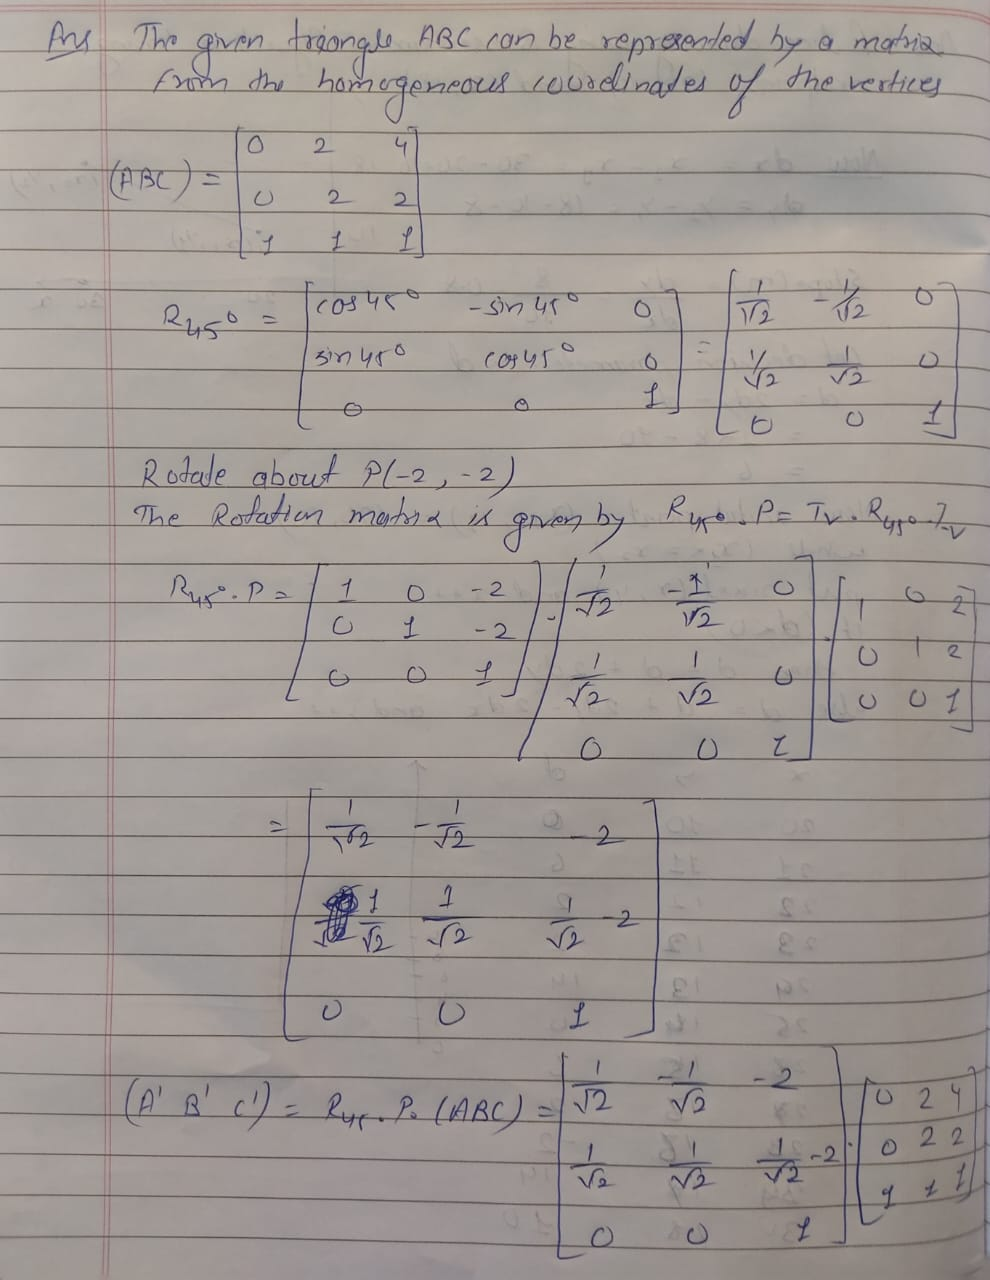 Ans The given triangle ABC can be represented by a matrix
from the homogeneous coordinates of the vertices
(ABC) = [0 2 4
0 2 2
1 1 1]
R45° = [cos45° -sin45° 0
sin45° cos45° 0
0 0 1] = [1/√2 -1/√2 0
1/√2 1/√2 0
0 0 1]
Rotate about P(-2, -2)
The Rotation matrix is given by R45°.P = Tv.R45°.T-v
R45°.P = [1 0 -2
0 1 -2
0 0 1] . [1/√2 -1/√2 0
1/√2 1/√2 0
0 0 1] . [1 0 2
0 1 2
0 0 1]
= [1/√2 -1/√2 -2
1/√2 1/√2 1/√2 -2
0 0 1]
(A' B' C') = R45.P.(ABC) = [1/√2 -1/√2 -2
1/√2 1/√2 1/√2 -2
0 0 1] . [0 2 4
0 2 2
1 1 1]